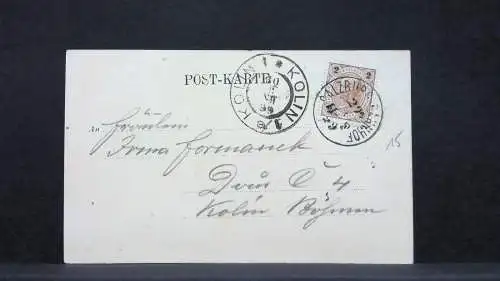 POST-KARTE
KOLIN 1 * KOLIN 1
99
2
SALZBURG BAHNHOF
An Fräulein
Irma Formanek
Kolin Böhmen
15